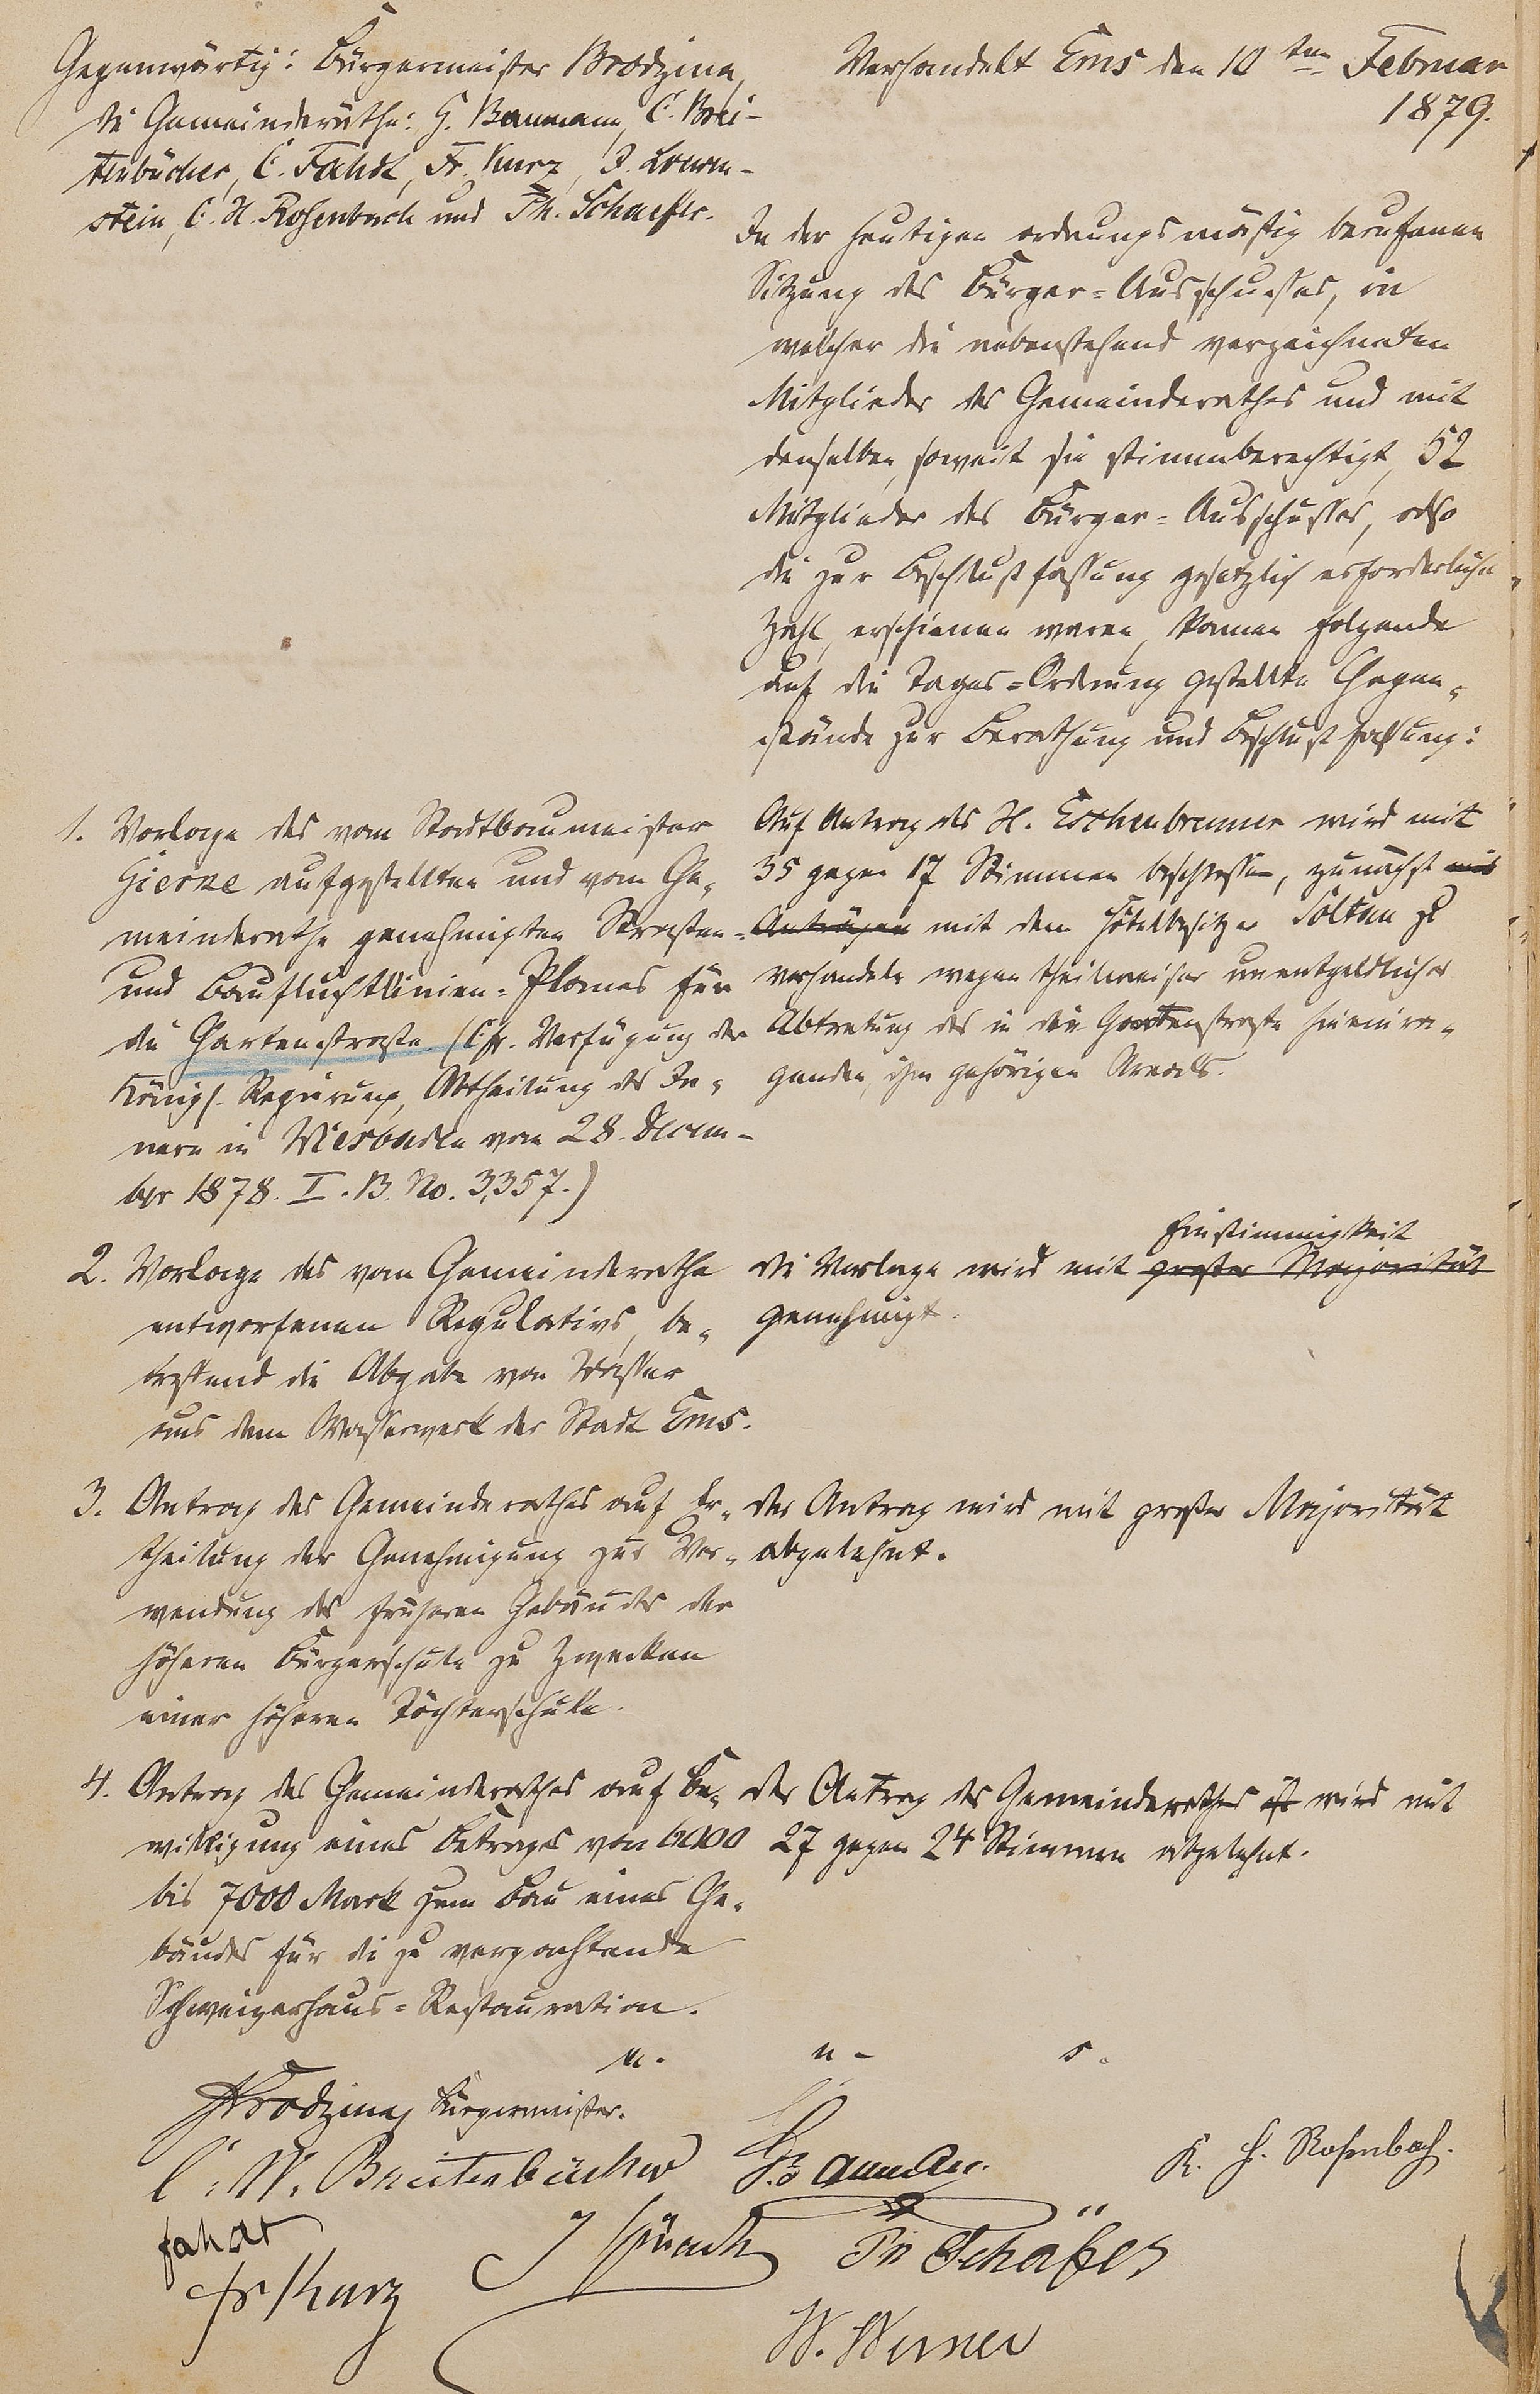 Gegenwärtig: Bürgermeister Brodzina,
die Gemeinderäthe: G. Baumann, C. Brei-
tenbücher, C. Fahdt, Fr. Kurz, J. Löwen-
stein, C. H. Rosenbach und Ph. Schaefer.
Verhandelt Ems den 10ten Februar
1879.
In der heutigen ordnungsmäßig berufenen
Sitzung des Bürger-Ausschusses, in
welcher die nebenstehend verzeichneten
Mitglieder des Gemeinderathes und mit
denselben, soweit sie stimmberechtigt, 52
Mitglieder des Bürger-Ausschusses, also
die zur Beschlußfassung gesetzlich erforderliche
Zahl, erschienen waren, kamen folgende
auf die Tages-Ordnung gestellte Gegen-
stände zur Berathung und Beschlußfassung:
1. Vorlage des vom Stadtbaumeister
Gierke aufgestellten und vom Ge-
meinderathe genehmigten Straßen-
und Baufluchtlinien-Planes für
die Gartenstraße (Cfr. Verfügung der
Königl. Regierung, Abtheilung des In-
nern in Wiesbaden vom 28. Decem-
ber 1878. I. B. No. 3357.)
Auf Antrag des H. Eschenbrenner wird mit
35 gegen 17 Stimmen beschlossen, zunächst
mit dem Hôtelbesitzer Soltau zu
verhandeln wegen theilweiser unentgeldlicher
Abtretung des in die Gartenstraße hineinra-
genden, ihm gehörigen Areals.
2. Vorlage des vom Gemeinderathe
entworfenen Regulativs, be-
treffend die Abgabe von Wasser
aus dem Wasserwerk der Stadt Ems.
Einstimmigkeit
Die Vorlage wird mit großer Majorität
genehmigt.
3. Antrag des Gemeinderathes auf Er-
theilung der Genehmigung zur Ver-
wendung des früheren Gebäudes der
höheren Bürgerschule zu Zwecken
einer höheren Töchterschule.
Der Antrag wird mit großer Majorität
abgelehnt.
4. Antrag des Gemeinderathes auf Be-
willigung eines Betrages von 6000
bis 7000 Mark zum Bau eines Ge-
bäudes für die zu verpachtende
Schweizerhaus-Restauration.
Der Antrag des Gemeinderathes ist wird mit
27 gegen 24 Stimmen abgelehnt.
u. s.
Brodzina, Bürgermeister.
C. W. Breitenbücher
G. Baumann.
K. H. Rosenbach.
Fahdt
Ph Schäfer
Fr Kurz
W. Werner